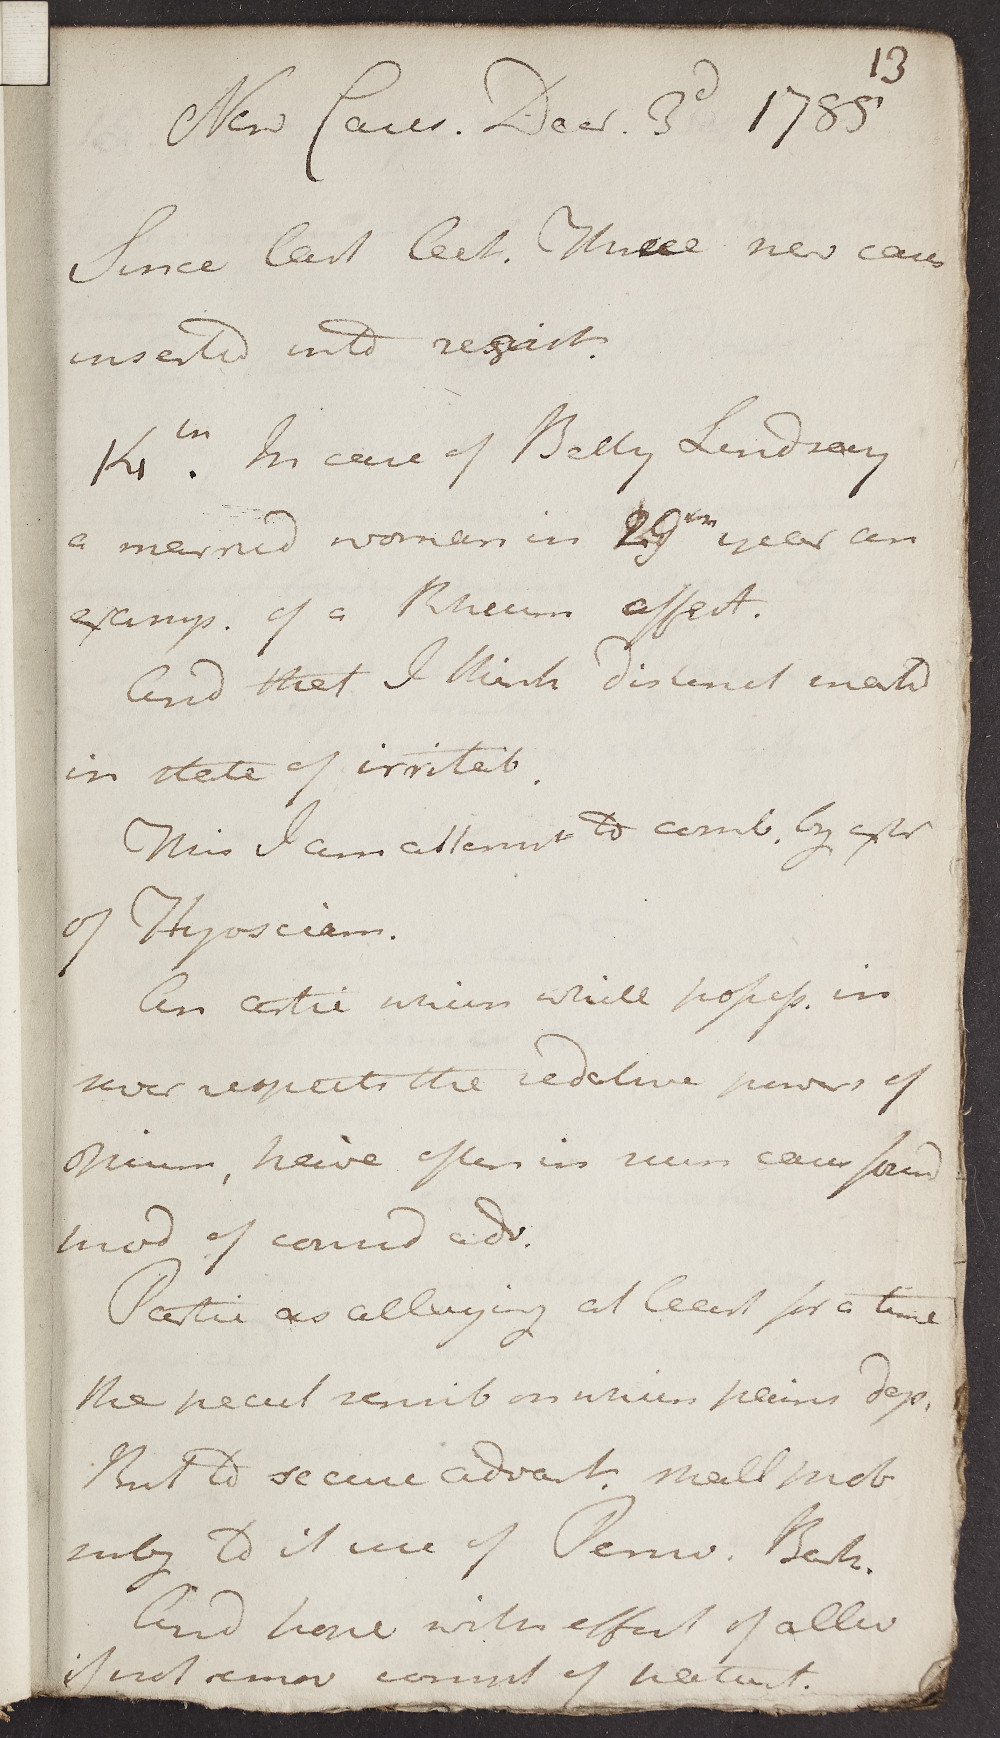 13
New Cases. Decr. 3d 1785
Since last lect. Three new cases
inserted into regist.
14th. In case of Betty Lindsay
a married woman in 29th year an
examp. of a Rheum affect.
And that I think distinct mark'd
in state of irritab.
This I am attempt to comb. by extr
of Hyosciam.
An artic which while possess. in
sever respects the sedative powers of
opium, have often in such cases found
prod of consid adv.
Partic as allaying at least for a time
the pecul sensib on which pains dep.
But to secure advant. shall prob
subj to it use of Peruv. Bark.
And hope with effect of allev
if not remov compl of patient.